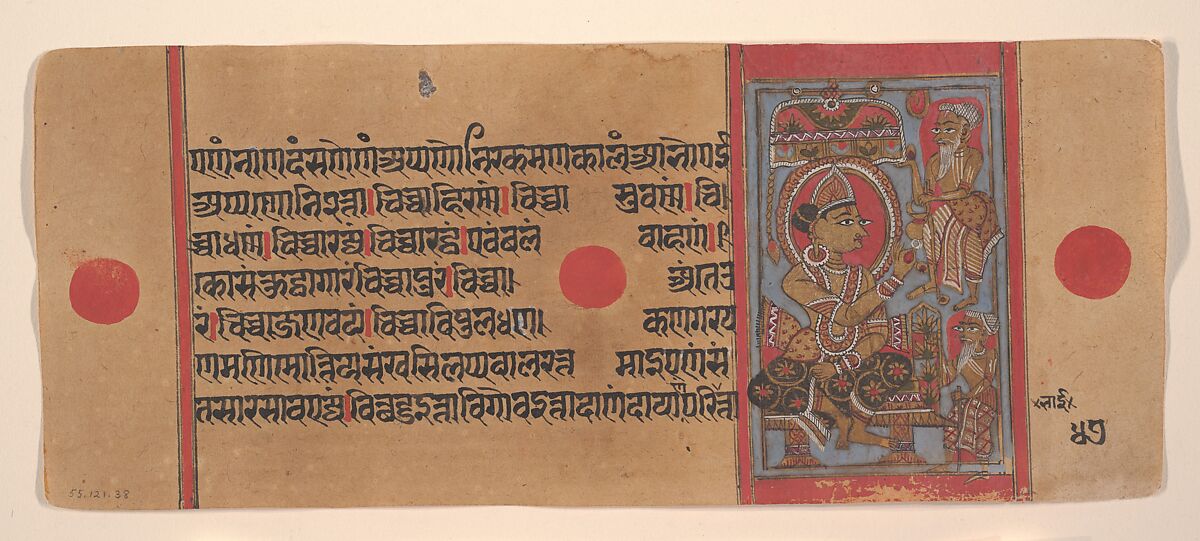 एणं नाणदंसणेणं अप्पणो निरकमणकालं आभोएइ
चिच्चा हिरणं। चिच्चा सुवणं। चि
च्चा धणं। चिच्चा रज्जं। चिच्चा रट्ठं। एवं बलं वाहणं।
कोसं कुट्ठागारं चिच्चा पुरं चिच्चा। अंतेउ
रं। चिच्चा जणवयं। चिच्चा विपुलधण। कणगरय
णमणिमोत्तियसंखसिलप्पवालरत्त माइएणं सं
तसारसावएज्जं। विछड्डइत्ता विगोवइत्ता दाणं
55.121.38